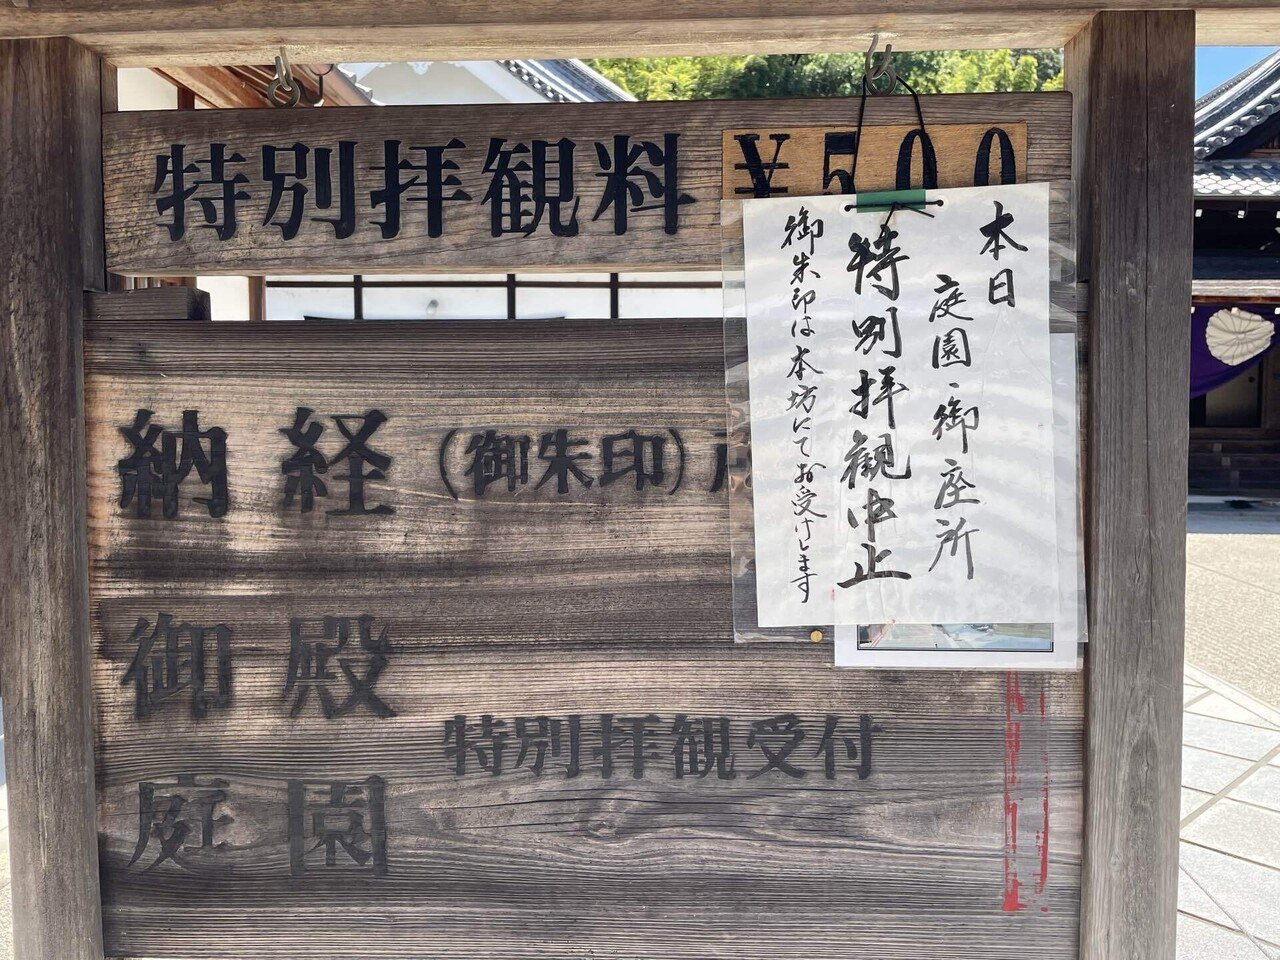 特別拝観料 ¥500
納経（御朱印）
御殿
庭園
特別拝観受付
本日
庭園、御座所
特別拝観中止
御朱印は本坊にてお受けします